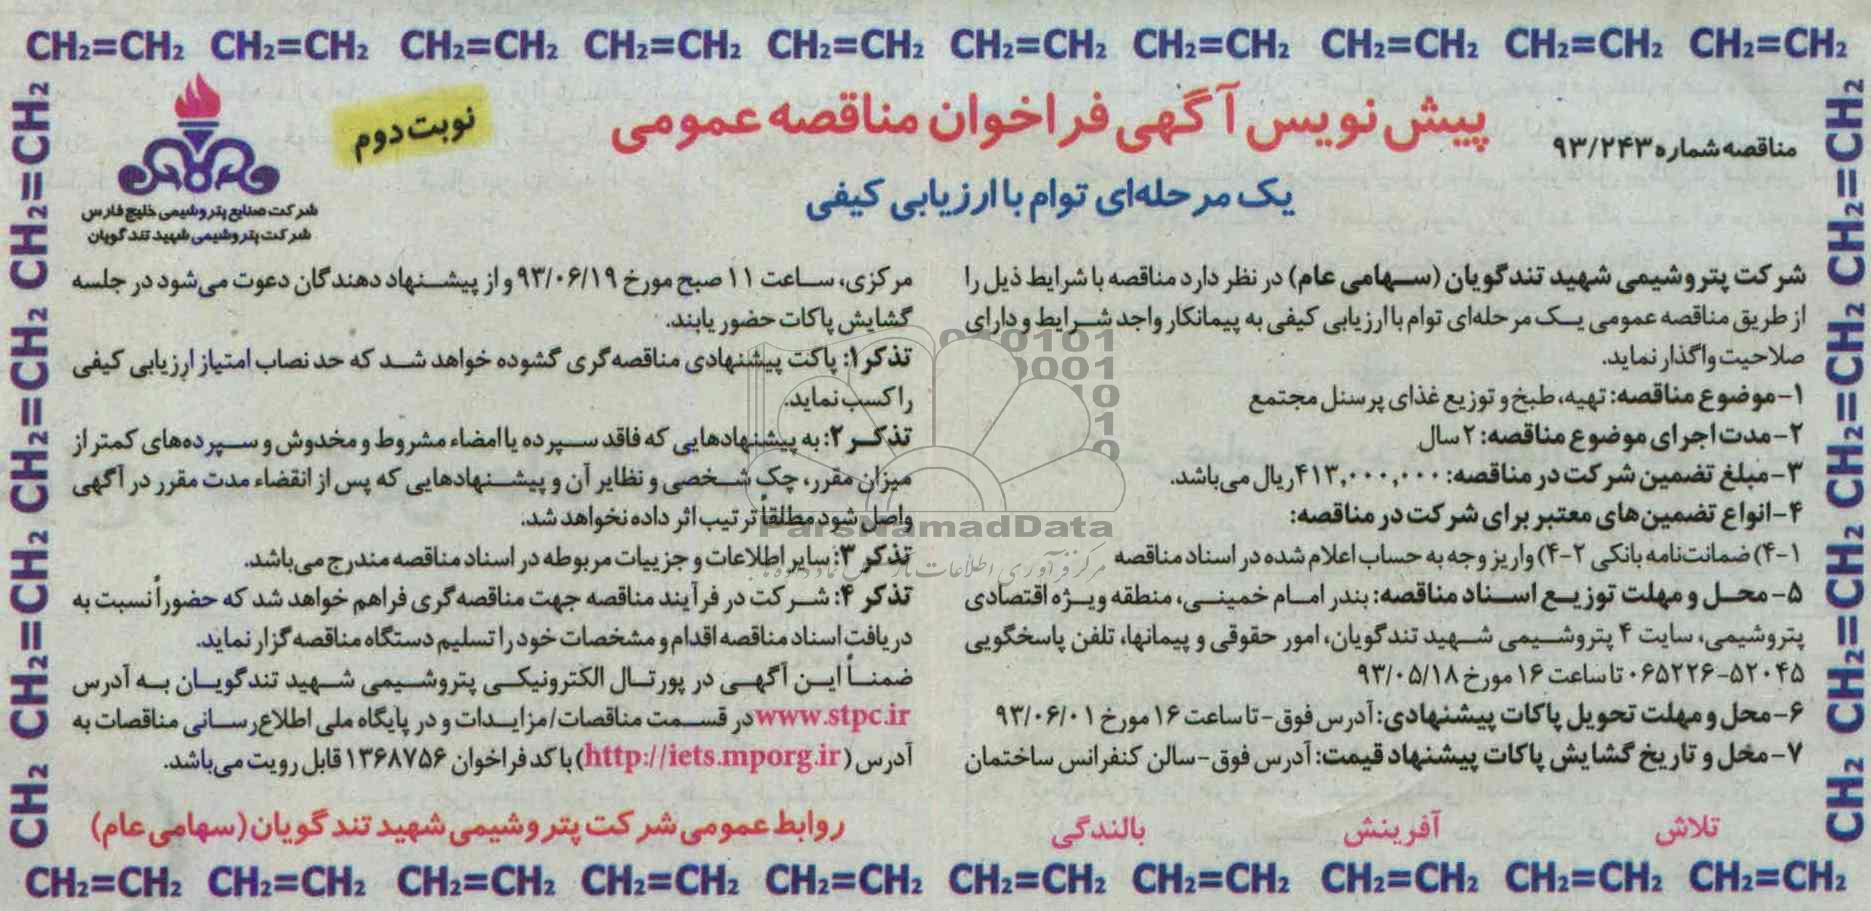 CH2=CH2 CH2=CH2 CH2=CH2 CH2=CH2 CH2=CH2 CH2=CH2 CH2=CH2 CH2=CH2 CH2=CH2 CH2=CH2
مناقصه شماره ۹۳/۲۴۳
پیش نویس آگهی فراخوان مناقصه عمومی
یک مرحله‌ای توام با ارزیابی کیفی
نوبت دوم
شرکت صنایع پتروشیمی خلیج فارس
شرکت پتروشیمی شهید تندگویان
شرکت پتروشیمی شهید تندگویان (سهامی عام) در نظر دارد مناقصه با شرایط ذیل را
از طریق مناقصه عمومی یک مرحله‌ای توام با ارزیابی کیفی به پیمانکار واجد شرایط و دارای
صلاحیت واگذار نماید.
۱- موضوع مناقصه: تهیه، طبخ و توزیع غذای پرسنل مجتمع
۲- مدت اجرای موضوع مناقصه: ۲ سال
۳- مبلغ تضمین شرکت در مناقصه: ۴۱۳,۰۰۰,۰۰۰ ریال می‌باشد.
۴- انواع تضمین‌های معتبر برای شرکت در مناقصه:
۴-۱) ضمانت‌نامه بانکی ۴-۲) واریز وجه به حساب اعلام شده در اسناد مناقصه
۵- محل و مهلت توزیع اسناد مناقصه: بندر امام خمینی، منطقه ویژه اقتصادی
پتروشیمی، سایت ۴ پتروشیمی شهید تندگویان، امور حقوقی و پیمانها، تلفن پاسخگویی
۰۶۵۲۲۶-۵۲۰۴۵ تا ساعت ۱۶ مورخ ۹۳/۰۵/۱۸
۶- محل و مهلت تحویل پاکات پیشنهادی: آدرس فوق - تا ساعت ۱۶ مورخ ۹۳/۰۶/۰۱
۷- محل و تاریخ گشایش پاکات پیشنهاد قیمت: آدرس فوق - سالن کنفرانس ساختمان
مرکزی، ساعت ۱۱ صبح مورخ ۹۳/۰۶/۱۹ و از پیشنهاد دهندگان دعوت می‌شود در جلسه
گشایش پاکات حضور یابند.
تذکر ۱: پاکت پیشنهادی مناقصه‌گری گشوده خواهد شد که حد نصاب امتیاز ارزیابی کیفی
را کسب نماید.
تذکر ۲: به پیشنهادهایی که فاقد سپرده یا امضاء مشروط و مخدوش و سپرده‌های کمتر از
میزان مقرر، چک شخصی و نظایر آن و پیشنهادهایی که پس از انقضاء مدت مقرر در آگهی
واصل شود مطلقاً ترتیب اثر داده نخواهد شد.
تذکر ۳: سایر اطلاعات و جزییات مربوطه در اسناد مناقصه مندرج می‌باشد.
تذکر ۴: شرکت در فرآیند مناقصه جهت مناقصه‌گری فراهم خواهد شد که حضوراً نسبت به
دریافت اسناد مناقصه اقدام و مشخصات خود را تسلیم دستگاه مناقصه گزار نماید.
ضمناً این آگهی در پورتال الکترونیکی پتروشیمی شهید تندگویان به آدرس
www.stpc.ir در قسمت مناقصات/مزایدات و در پایگاه ملی اطلاع‌رسانی مناقصات به
آدرس (http://iets.mporg.ir) با کد فراخوان ۱۳۶۸۷۵۶ قابل رویت می‌باشد.
ParsNamadData
تلاش آفرینش بالندگی
روابط عمومی شرکت پتروشیمی شهید تندگویان (سهامی عام)
CH2=CH2 CH2=CH2 CH2=CH2 CH2=CH2 CH2=CH2 CH2=CH2 CH2=CH2 CH2=CH2 CH2=CH2 CH2=CH2
CH2=CH2 CH2=CH2 CH2=CH2 CH2=CH2
CH2=CH2 CH2=CH2 CH2=CH2 CH2=CH2